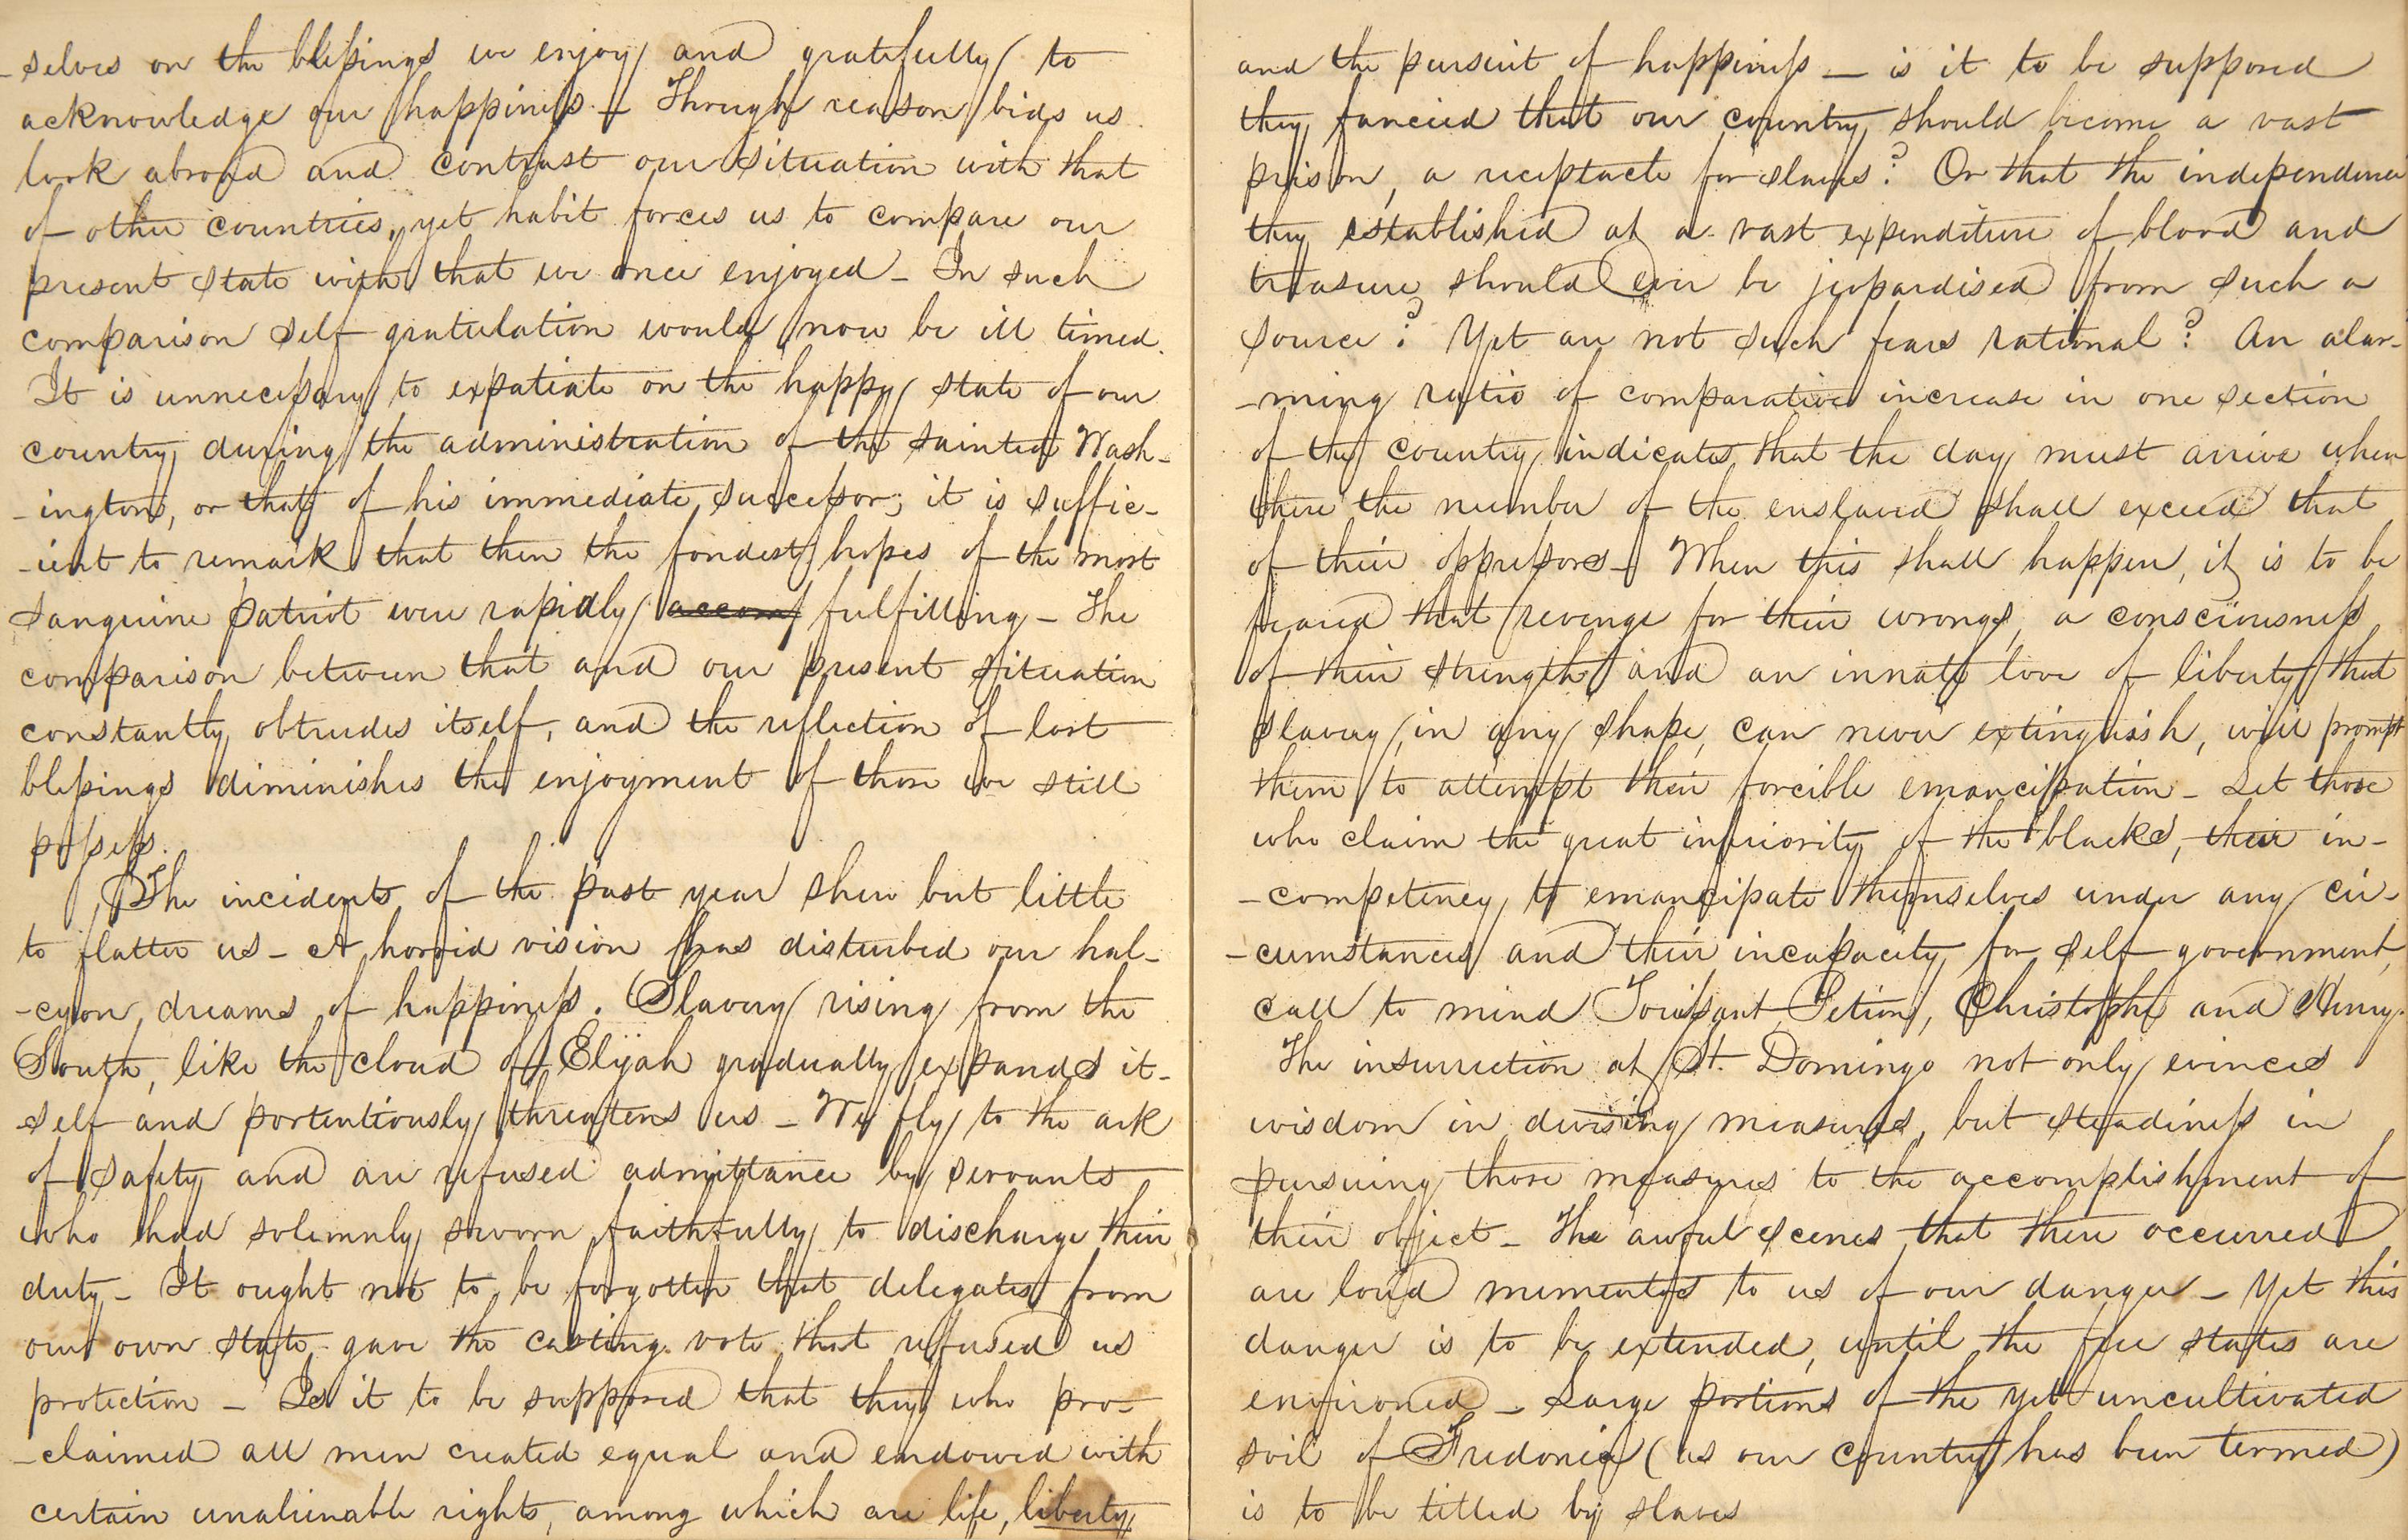 -selves on the blessings we enjoy and gratefully to
acknowledge our happiness – Through reason bids us
look abroad and contrast our situation with that
of other countries, yet habit forces us to compare our
present state with that we once enjoyed – In such
comparison self gratulation would now be ill timed.
It is unnecessary to expatiate on the happy state of our
country during the administration of the sainted Wash-
-ington, or that of his immediate successor; it is suffic-
-ient to remark that then the fondest hopes of the most
sanguine patriot were rapidly accom fulfilling – The
comparison between that and our present situation
constantly obtrudes itself, and the reflection of lost
blessings diminishes the enjoyment of those we still
possess.
The incidents of the past year shew but little
to flatter us – A horrid vision has disturbed our hal-
-cyon dreams of happiness. Slavery rising from the
South, like the cloud of Elijah gradually expands it-
-self and portentiously threatens us – We fly to the ark
of safety and are refused admittance by servants
who had solemnly sworn faithfully to discharge their
duty – It ought not to be forgotten that delegates from
our own state gave the casting vote that refused us
protection – Is it to be supposed that they who pro-
-claimed all men created equal and endowed with
certain unalienable rights, among which are life, liberty,
and the pursuit of happiness – is it to be supposed
they fancied that our country should become a vast
prison, a receptacle for slaves? Or that the independence
they established at a vast expenditure of blood and
treasure should ever be jeopardised from such a
source? Yet are not such fears rational? An alar-
-ming ratio of comparative increase in one section
of the country indicates that the day must arrive when
there the number of the enslaved shall exceed that
of their oppressors – When this shall happen, it is to be
feared that revenge for their wrongs, a consciousness
of their strength and an innate love of liberty that
slavery, in any shape, can never extinguish, will prompt
them to attempt their forcible emancipation – Let those
who claim the great inferiority of the blacks, their in-
-competency to emancipate themselves under any cir-
-cumstances and their incapacity for self government,
call to mind Touissant Petion, Christophe and Henry.
The insurrection at St. Domingo not only evinces
wisdom in devising measures, but steadiness in
pursuing those measures to the accomplishment of
their object – The awful scenes that there occurred
are loud mementos to us of our danger – Yet this
danger is to be extended, until the free states are
environed – Large portions of the yet uncultivated
soil of Fredonia (as our country has been termed)
is to be tilled by slaves